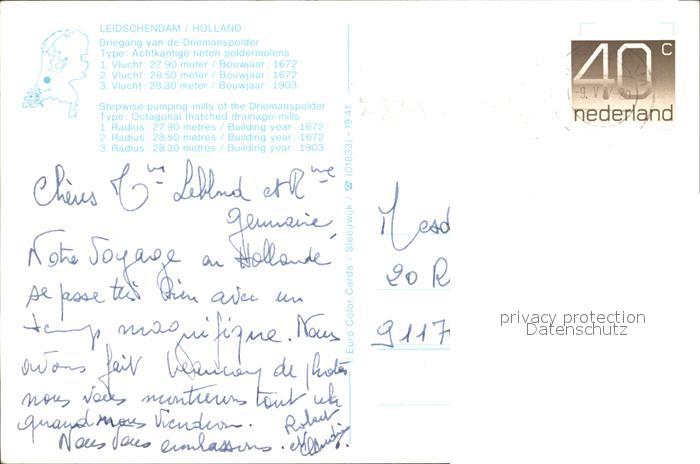 LEIDSCHENDAM / HOLLAND
Driegang van de Driemanspolder
Type: Achtkantige rieten poldermolens
1. Vlucht: 27.90 meter / Bouwjaar: 1672
2. Vlucht: 28.50 meter / Bouwjaar: 1672
3. Vlucht: 28.30 meter / Bouwjaar: 1903
Stepwise pumping-mills of the Driemanspolder
Type: Octagonal thatched drainage-mills
1. Radius: 27.90 metres / Building year: 1672
2. Radius: 28.50 metres / Building year: 1672
3. Radius: 28.30 metres / Building year: 1903
Chères Mme Leblond et Mme
Germaine,
Notre voyage en Hollande
se passe très bien avec un
temps magnifique. Nous
avons fait beaucoup de photos
nous vous montrerons tout cela
quand nous viendrons.
Nous vous embrassons. Robert
et Claudine
Euro Color Cards / Sleeuwijk / ☎ (01833) - 19 41
40 c
nederland
Mesd
20 R
9117
privacy protection
Datenschutz